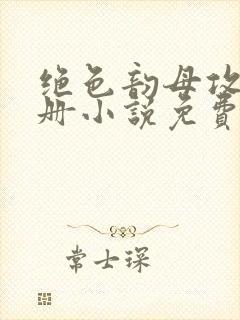 绝色韵母攻
册小说免费
常士琛